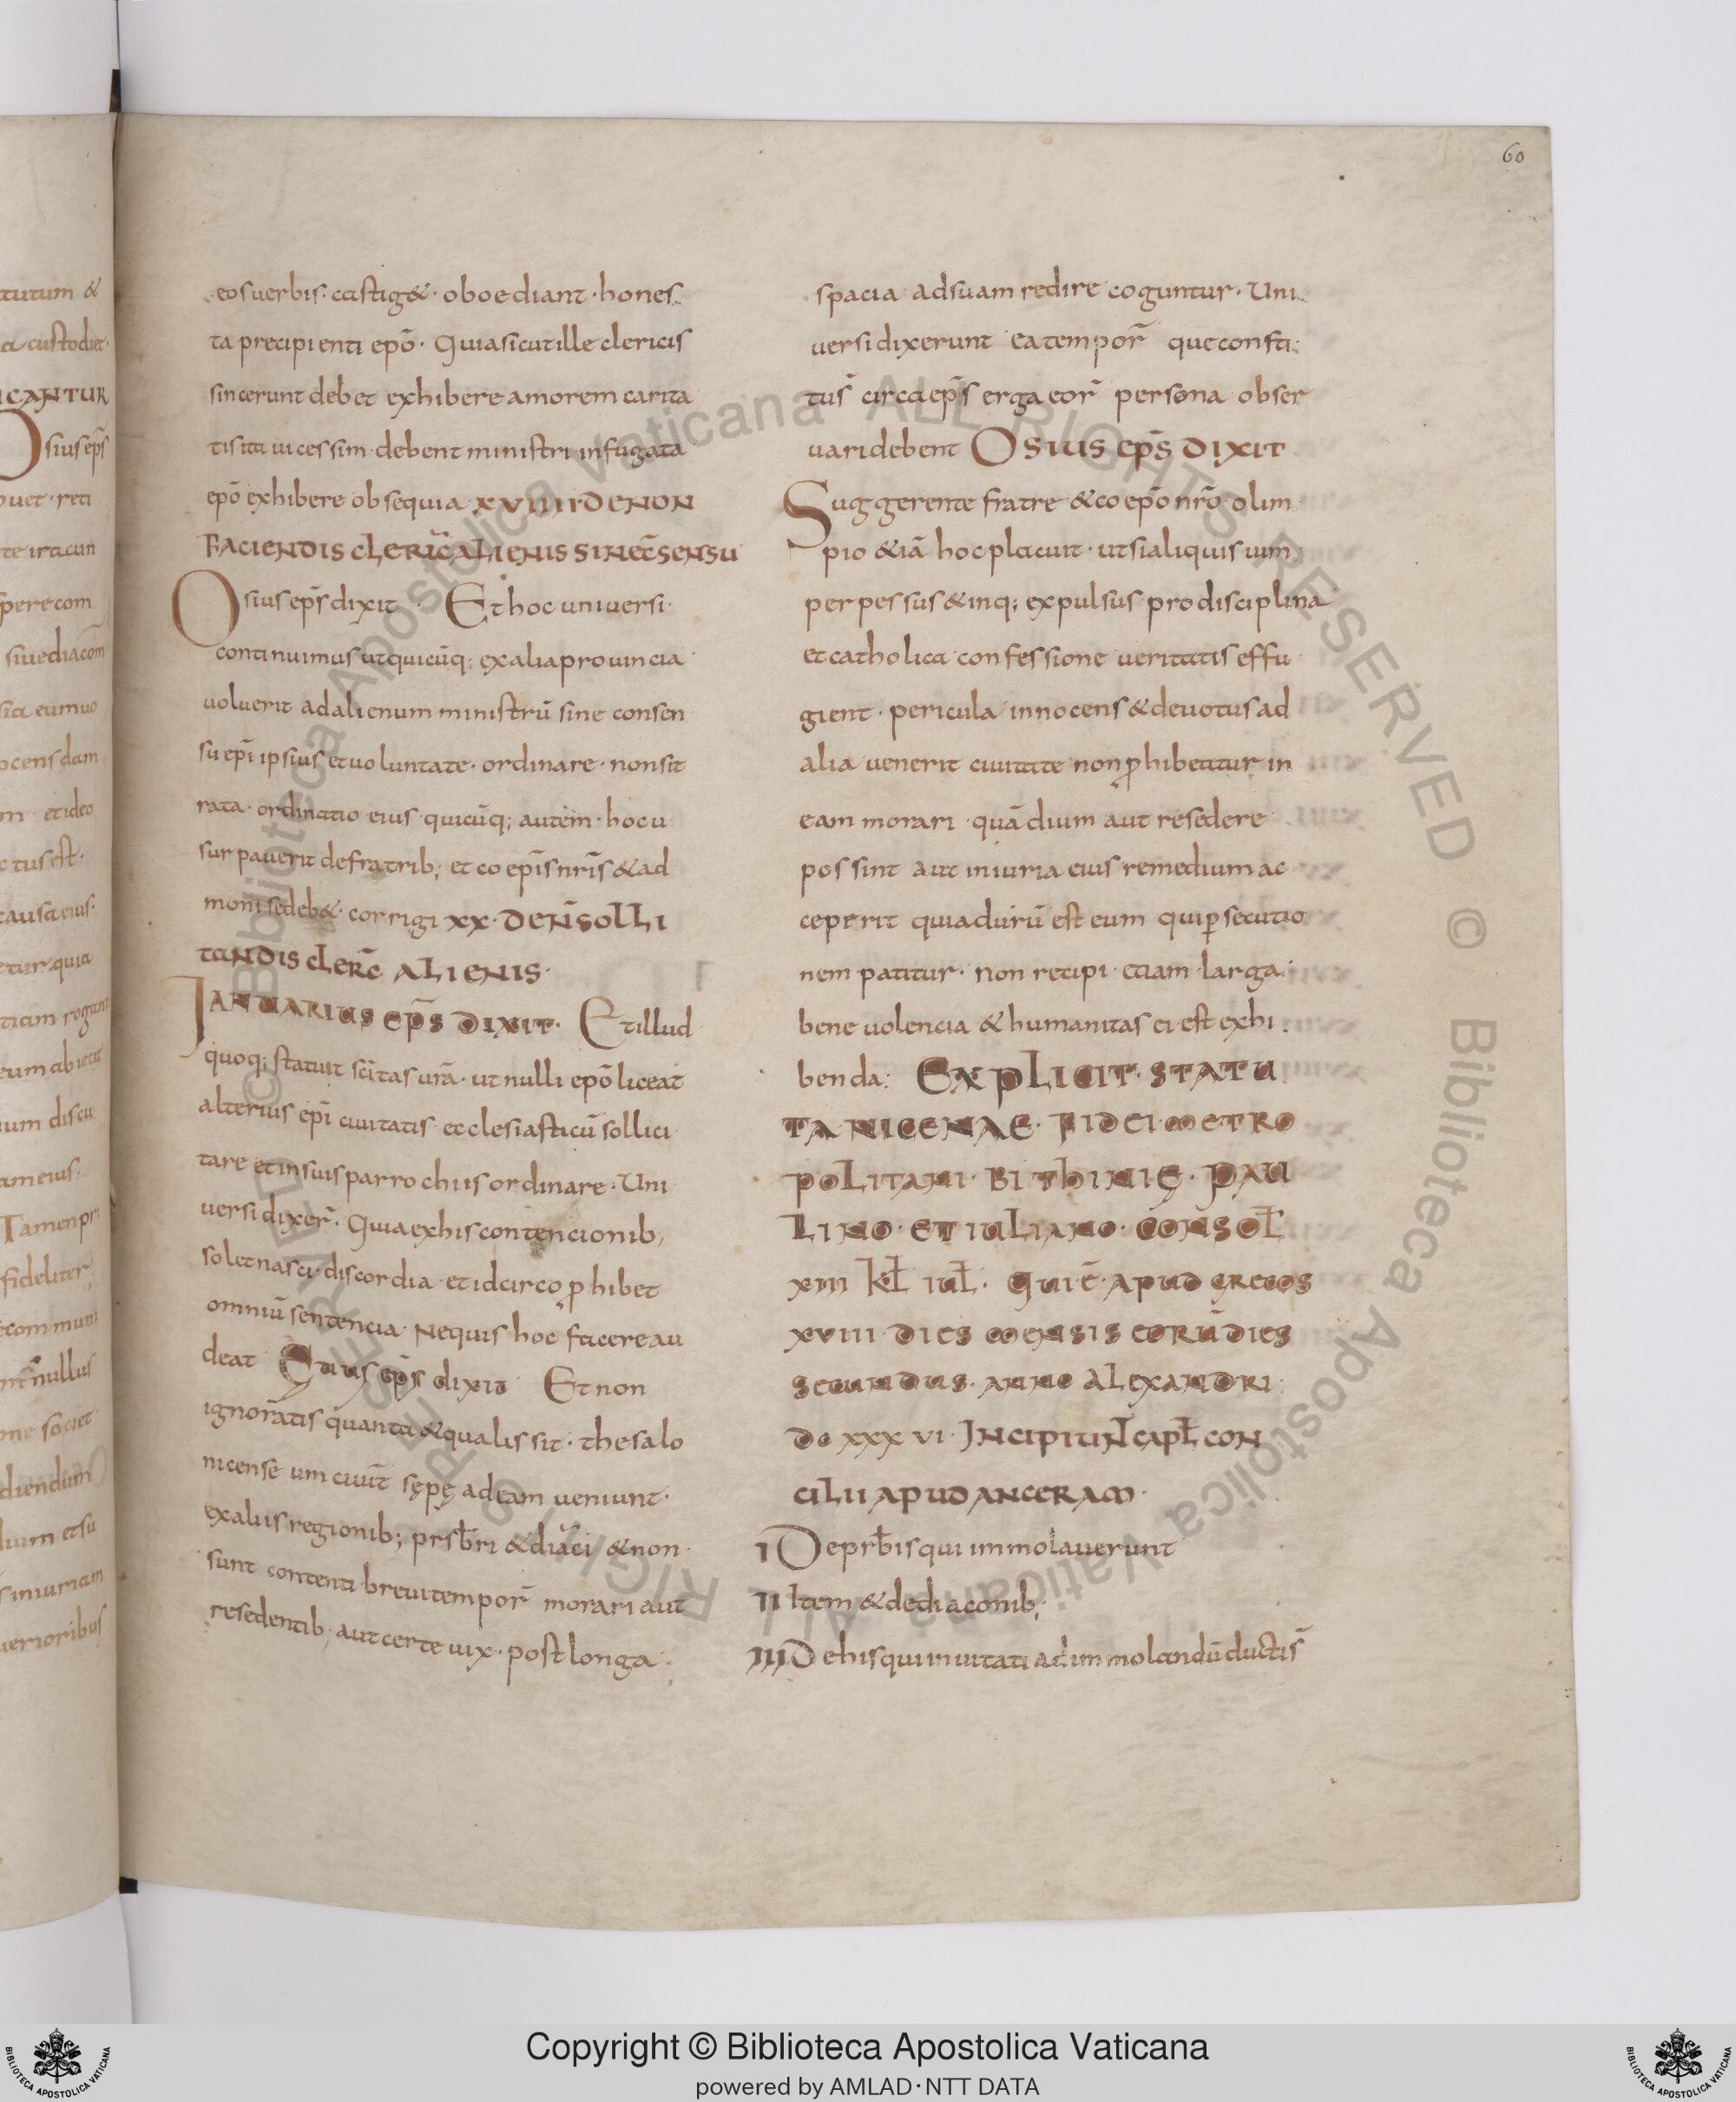 60
eos uerbis · castig& · oboediant · hones
ta precipienti ep̄o · Quia sicut ille clericis
sincerunt debet exhibere amorem carita
tis ita uicessim · debent ministri infugata
ep̄o exhibere obsequia XVIIII DE NON
FACIENDIS CLERIC̄ ALIENIS SINE C̄SENSU
Osius ep̄s dixit · Et hoc uniuersi ·
continuimus ut quicūq; ex alia prouincia
uoluerit ad alienum ministrū sine consen
su ep̄i ipsius et uoluntate · ordinare · non sit
rata · ordinatio eius · quicūq; autem · hoc u
surpauerit de fratrib; et coep̄is nr̄is & ad
moni se deb& · corrigi XX · DE N̄ SOLLI
TANDIS CLERC̄ ALIENIS ·
IANUARIUS EP̄S DIXIT · Et illud
quoq; statuit sc̄itas urā · ut nulli ep̄o liceat
alterius ep̄i ciuitatis ecclesiasticū sollici
tare et in suis parrochiis ordinare · Uni
uersi dixer̄ · Quia ex his contencionib;
solet nasci · discordia · et idcirco ꝓhibet
omniū sentencia · Nequis hoc facere au
deat Osius ep̄s dixit Et non
ignoratis quanta & qualis sit · thesalo
nicense um ciuit̄ sępę ad eam ueniunt ·
ex aliis regionib; prsb̄ri & diac̄i & non ·
sunt contenti breui tempor̄ morari aut
resedentib; aut certe uix · post longa ·
spacia ad suam redire coguntur · Uni
uersi dixerunt ea tempor̄ que consti
tus̄ circa ep̄s erga eor̄ persona obser
uari debent OSIUS EP̄S DIXIT
Suggerente fratre & coep̄o nrō · olim
pio & iā hoc placuit · ut si aliquis uim
perpessus & inq; expulsus pro disciplina
et catholica confessione ueritatis effu
gient · pericula innocens & deuotus ad
alia uenerit ciuitate non ꝓhibeatur in
eam morari · quā dium aut resedere
possint aut iniuria eius remedium ac
ceperit quia durū est eum qui ꝑsecutio
nem patitur · non recipi etiam · larga ·
beneuolencia & humanitas ei est exhi
benda : EXPLICIT · STATU
TA NICENAE · FIDEI · METRO
POLITANI · BITHINIĘ · PAU
LINO · ET IULIANO · CONSOŁ
XIII KŁ IUŁ · QUI Ē APUD GRECOS
XVIII · DIES MENSIS EORŪ DIES
SECUNDUS · ANNO ALEXANDRI
DC XXXVI · INCIPIUN̄ CAPŁ CON
CILII APUD ANCERAM ·
I De prb̄is qui immolauerunt
II Item & de diaconib;
III De his qui inuitati ad immolandū ductis̄
Copyright © Biblioteca Apostolica Vaticana
powered by AMLAD·NTT DATA